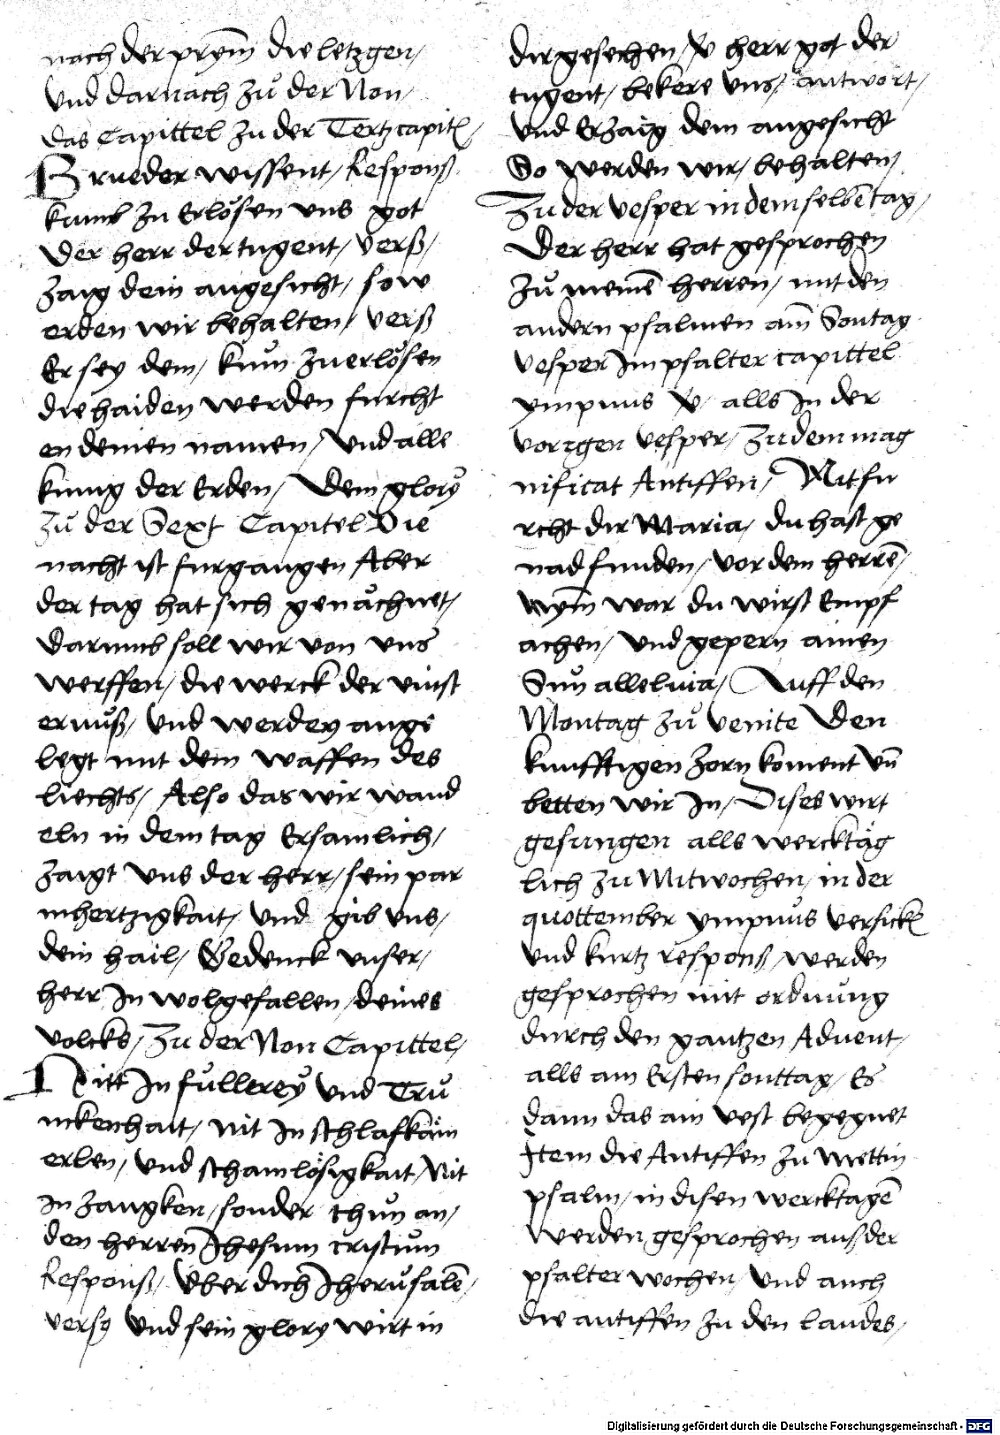 nach der prÿm die letzgen /
Vnd darnach zů der Non /
das Capittel zu der Tertz capitl /
Brueder wissent / Respons
kumb zu Erlösen vns got
der herr der tugent / verß /
zaig dein angesicht / so w
erden wir behalten / verß
Er sey dem / kum zu erlösen
die haiden werden furcht
en deinen namen / Vnd alle
kunig der Erden / Dem glory
zů der Sext Capitel Die
nacht ist furgangen Aber
der tag hat sich genåchnet /
darumb soll wir von vns
werffen / die werck der vinst
ernuß / Vnd werden ange
legt mit dem waffen des
liechts / Also das wir wand
eln in dem tag Ersamlich /
zaigt vns der herr / sein par
mhertzigkait / Vnd gib vns /
dein hail / Gedenck vnser /
herr In wolgefallen / deines
volcks / Zu der Non Capittel /
Nitt In fullereÿ Vnd Tru
nckenhait / nit In schlafkäm
erlen / Vnd schamlösigkait / Nit
In zangken / sonder thun an /
den herren Jhesum cristum
Respons / Vber dich Jherusalē /
verß Vnd sein glory wirt in
dir gesechen / V herr got der
tugent / bekere vns / antwort /
Vnd Erzaig dein angesicht
So werden wir / behalten /
Zu der vesper in dem selbē tag /
Der herr hat gesprochen
zů meinē herren / mit den
andern psalmen am Sontag
vesper Im psalter capittel
ympnus V alls In der
vorigen vesper / zu dem mag
nificat Antiffen / Nit fu
rcht dir Maria / du hast ge
nad funden / vor dem herrē /
Nym war du wirst Empf
achen / Vnd gepern ainen
Sun alleluia / Auff den
Montag zů venite Den
kunfftigen zorn koment vn̄
betten wir In / Dises wirt
gesungen alls wercktäg
lich zu Mitwochen / in der
quottember ympnus versickl
Vnd kurtz respons / werden
gesprochen mit ordnung
durch den gantzen Advent /
alls am Ersten sonttag / Es
dann das ain vest begegnet
Item die Antiffen zu mettin
psalm / in disen wercktagē
Werden gesprochen auß der
psalter wochen / Vnd auch
die antiffen zu den laudes /
Digitalisierung gefördert durch die Deutsche Forschungsgemeinschaft - DFG